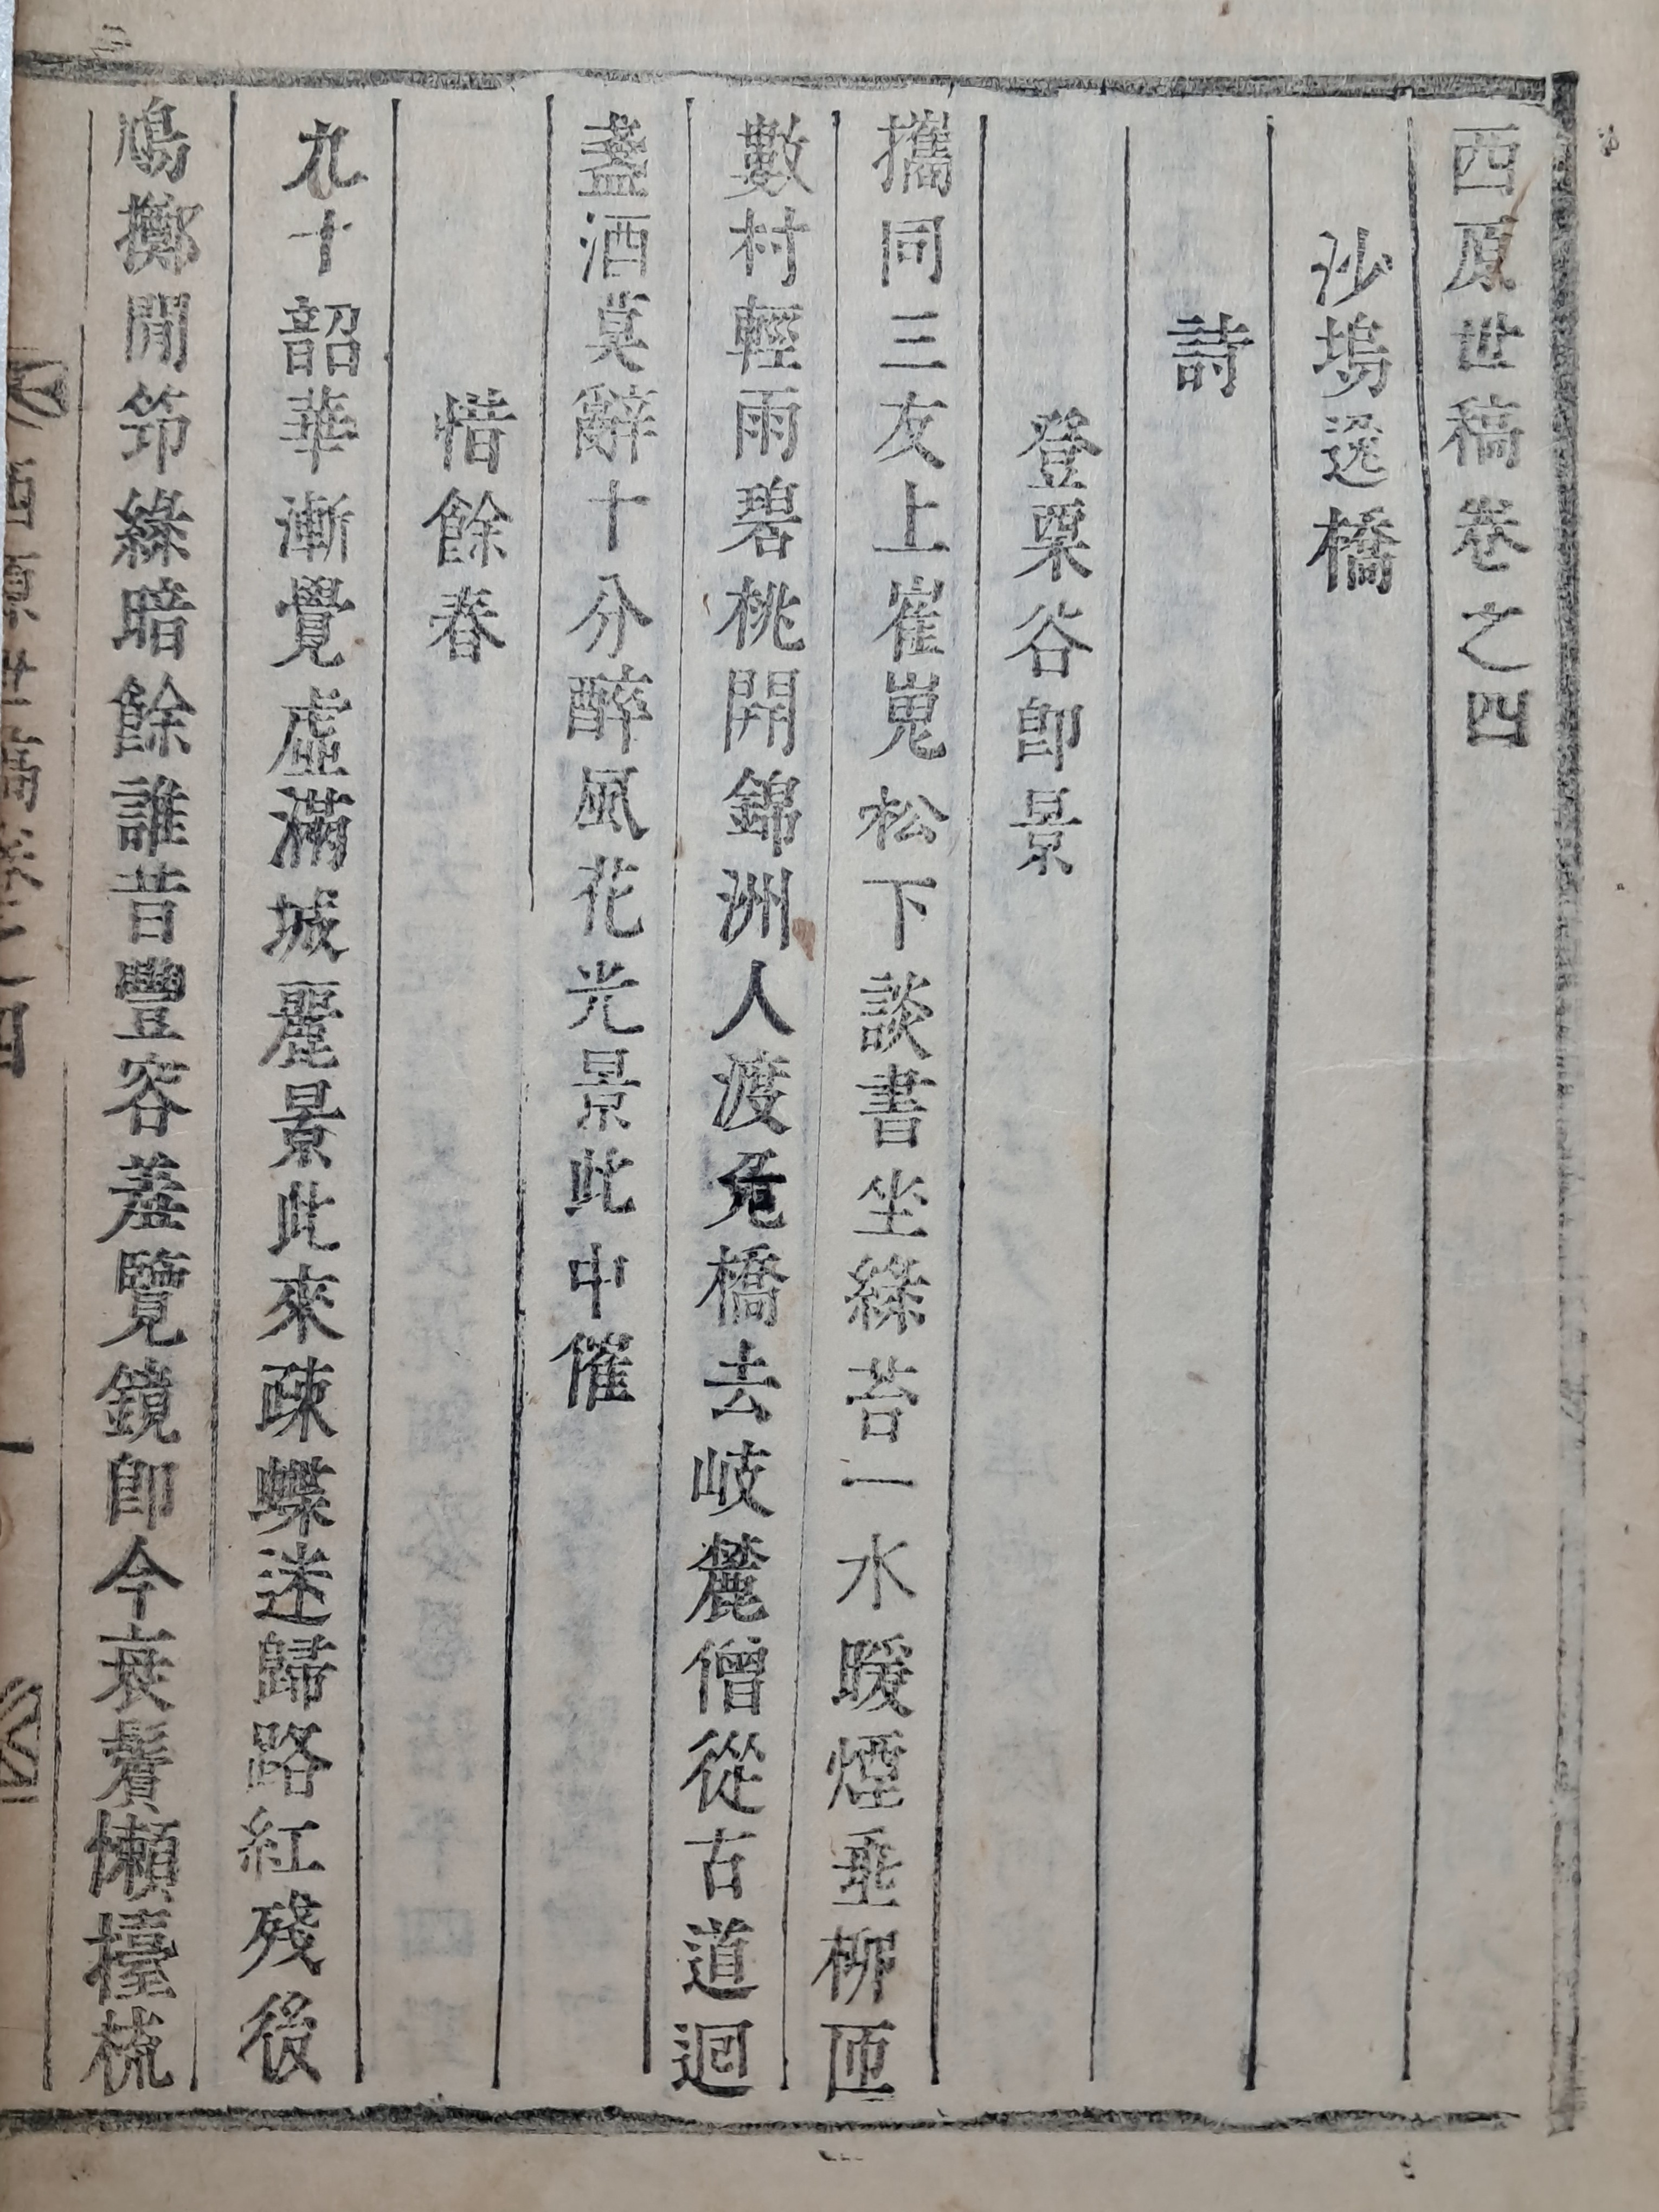 西原世稿卷之四
沙塢逸稿
詩
登栗谷卽景
攜同三友上崔嵬松下談書坐綠苔一水暖煙垂柳匝
數村輕雨碧桃開錦洲人渡危橋去岐麓僧從古道迴
盞酒莫辭十分醉風花光景此中催
惜餘春
九十韶華漸覺虛滿城麗景此來疎蝶迷歸路紅殘後
鳩擲閒筇綠暗餘誰昔豐容羞覽鏡卽今衰鬢懶擡梳
西原世稿卷之四
一